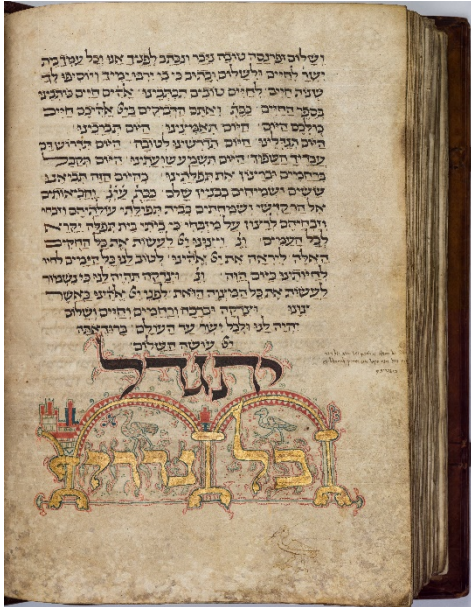 ושלום ופרנסה טובה ניזכר וניכתב לפניך אנו וכל עמך בית
ישר׳ לחיים ולשלום וכתוב כי בי ירבו ימיך ויוסיפו לך
שנות חיים לחיים טובים תכתבינו אלהים חיים כותבינו
בספר החיים ככת׳ ואתם הדביקים בייי אלהיכם חיים
כולכם היום היום תאמצינו היום תברכינו
היום תגדלינו היום תדרשינו לטובה היום תדרוש דם
עבדיך השפוך היום תשמע שועתינו היום תקבל
ברחמים וברצון את תפלתינו כהיום הזה תביאנו
ששים ושמיחים בבניין שלם ככת׳ והביאותים
אל הר קדשי ושמחתים בבית תפלתי עולתיהם וזבחי
וזבחיהם לרצון על מזבחי כי ביתי בית תפלה יקרא
לכל העמים ונ׳ ויצוינו ייי לעשות את כל החקים
האלה ליראה את ייי אלהינו לטוב לנו כל הימים לחיו
לחיותינו כיום הזה ונ׳ וצדקה תהיה לנו כי נשמור
לעשות את כל המצוה הזאת לפני ייי אלהינו כאשר
צונו וצדקה וברכה ורחמים וחיים ושלום
יהיה לנו ולכל ישר׳ עד העולם ברוך אתה
ייי עושה השלום
יתגדל
כל נדרי